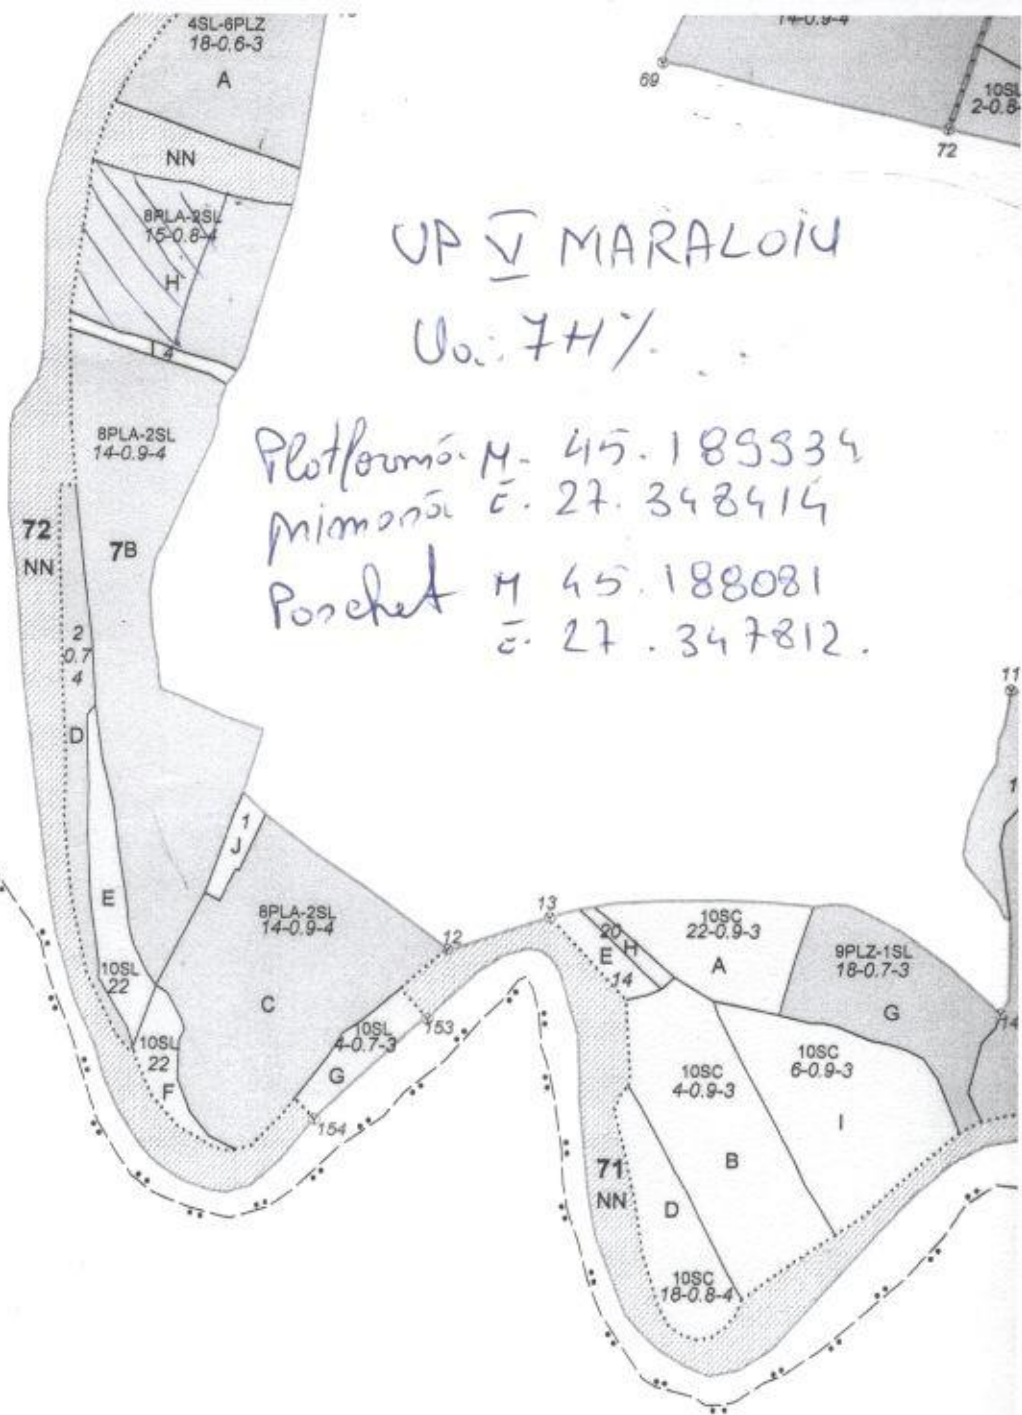 4SL-6PLZ
18-0.6-3
A
NN
8PLA-2SL
15-0.8-4
H
I 4
8PLA-2SL
14-0.9-4
72
NN
7B
2
0.7
4
D
E
10SL
22
10SL
22
F
1
J
8PLA-2SL
14-0.9-4
C
12
10SL
4-0.7-3
G
153
154
14-0.9-4
69
72
10SL
2-0.8-
UP V MARALOIU
Ua: 7H%
Platformă N- 45.189934
primară E. 27.348414
Parchet N 45.188081
E. 27.347812.
11
1
13
20
E
H
14
10SC
22-0.9-3
A
9PLZ-1SL
18-0.7-3
G
14
10SC
4-0.9-3
B
10SC
6-0.9-3
I
71
NN
D
10SC
18-0.8-4